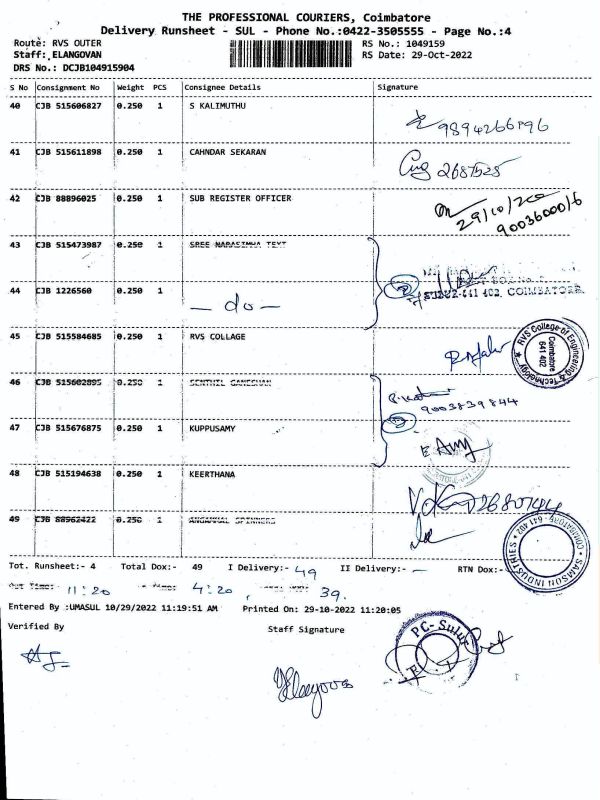 THE PROFESSIONAL COURIERS, Coimbatore
Delivery Runsheet - SUL - Phone No.:0422-3505555 - Page No.:4
Route: RVS OUTER RS No.: 1049159
Staff: ELANGOVAN RS Date: 29-Oct-2022
DRS No.: DCJB104915904
S No Consignment No Weight PCS Consignee Details Signature
40 CJB 515606827 0.250 1 S KALIMUTHU
9894266196
41 CJB 515611898 0.250 1 CAHNDAR SEKARAN
2687525
42 CJB 88896025 0.250 1 SUB REGISTER OFFICER
29/10/20
90036000/6
43 CJB 515473987 0.250 1 SREE NARASIMHA TEXT
44 CJB 1226560 0.250 1 — do —
SULUR-641 402, COIMBATORE.
45 CJB 515584685 0.250 1 RVS COLLAGE
RVS College of Engineering & Technology
Coimbatore
641 402
46 CJB 515602895 0.250 1 SENTHIL GANESHAN
9003839844
47 CJB 515676875 0.250 1 KUPPUSAMY
48 CJB 515194638 0.250 1 KEERTHANA
49 CJB 88962422 0.250 1 ANGAMMAL SPINNERS
SAMSON INDUSTRIES • COIMBATORE - 641 402
Tot. Runsheet:- 4 Total Dox:- 49 I Delivery:- 49 II Delivery:- — RTN Dox:-
Out Time: 11:20 4:20 39.
Entered By :UMASUL 10/29/2022 11:19:51 AM Printed On: 29-10-2022 11:20:05
Verified By Staff Signature
PC-Sulur